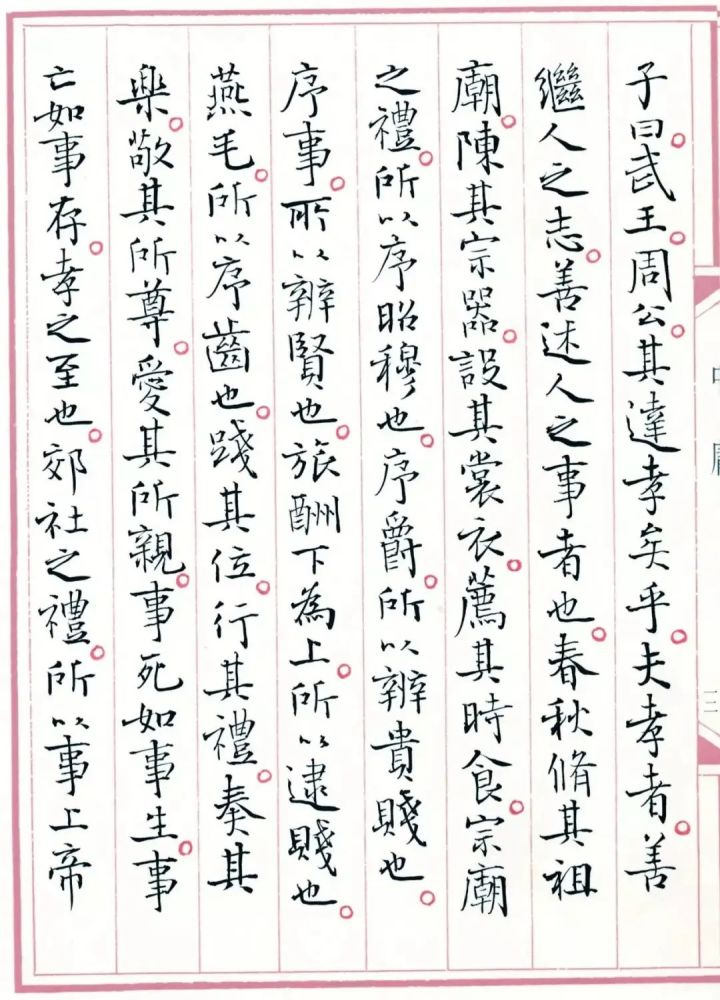 子曰。武王。周公。其達孝矣乎。夫孝者。善
繼人之志。善述人之事者也。春秋脩其祖
廟。陳其宗器。設其裳衣。薦其時食。宗廟
之禮。所以序昭穆也。序爵。所以辨貴賤也。
序事。所以辨賢也。旅酬下為上。所以逮賤也。
燕毛。所以序齒也。踐其位。行其禮。奏其
樂。敬其所尊。愛其所親。事死如事生。事
亡如事存。孝之至也。郊社之禮。所以事上帝
中庸
三